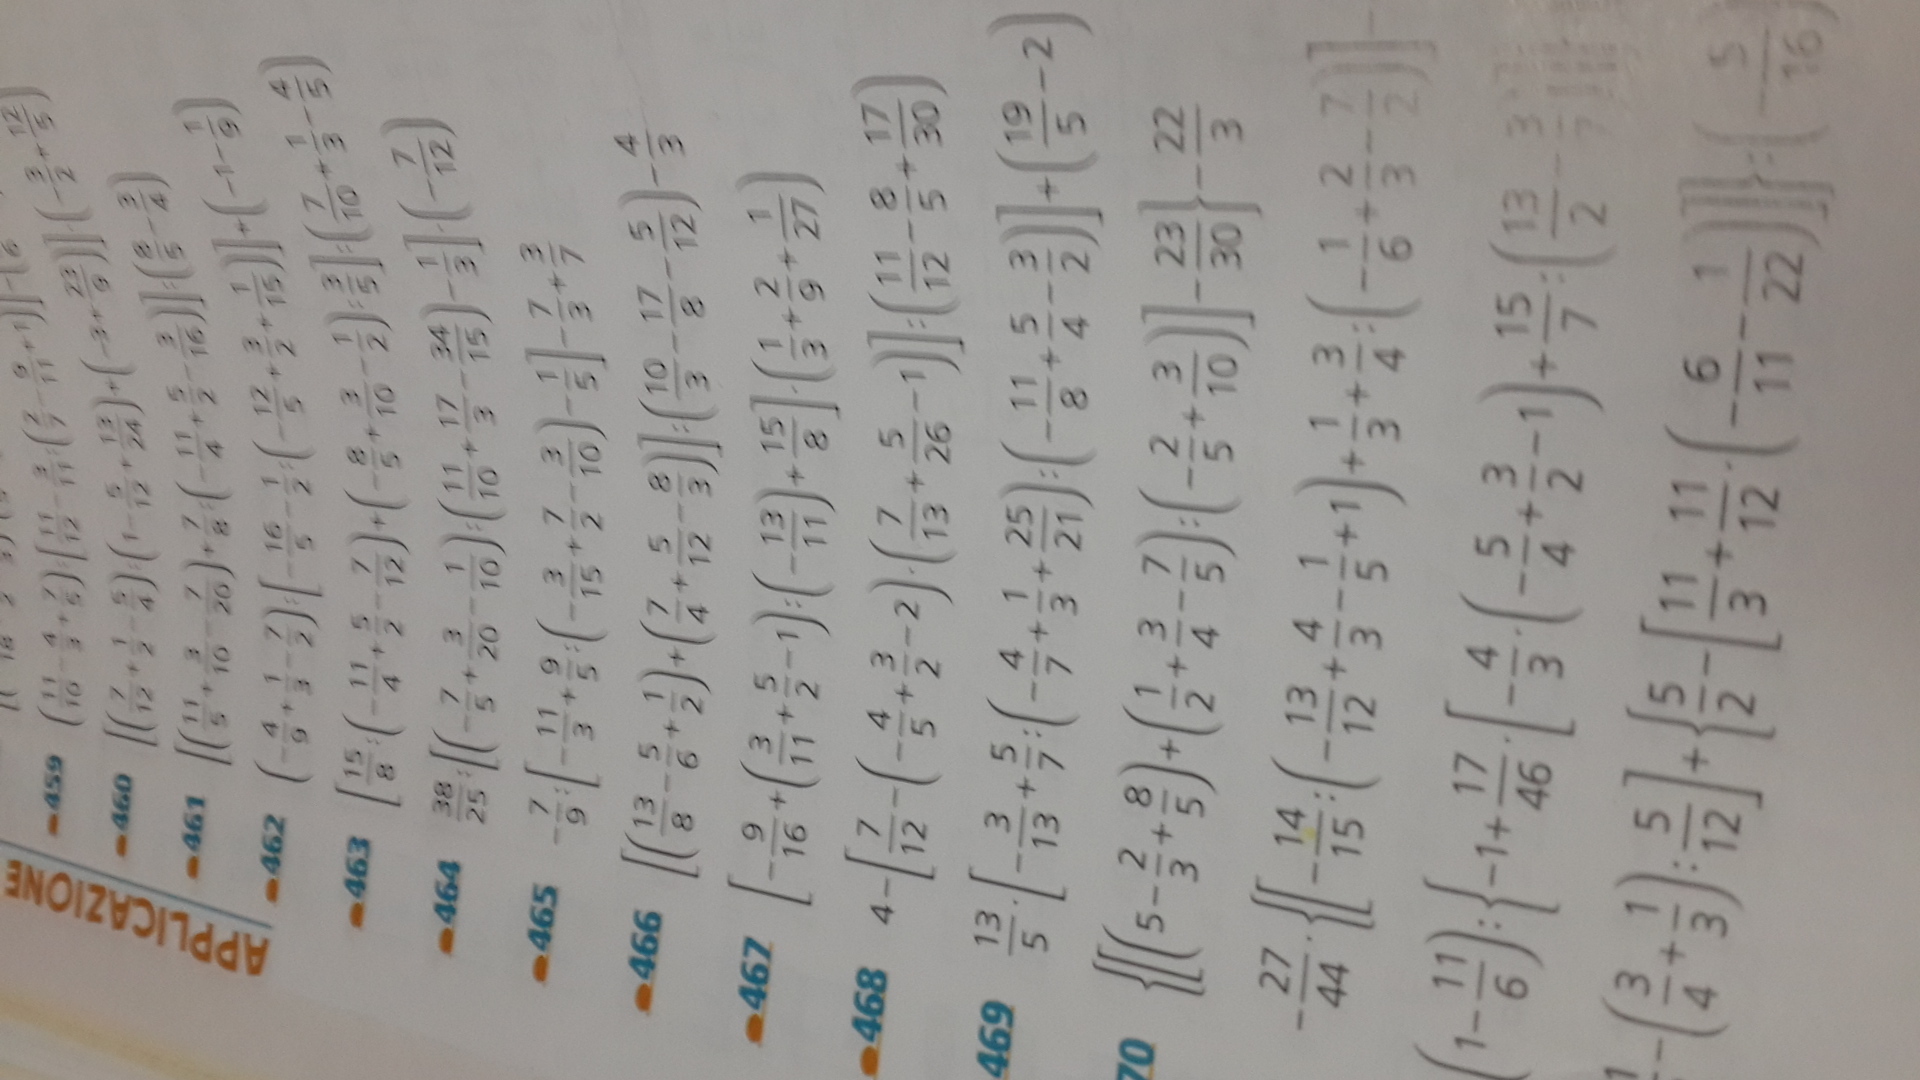 APPLICAZIONE
459 (11/10 - 4/3 + 7/6) : [11/12 - 3/11 : (2/7 - 9/11 + 1)] - (6
460 [(7/12 + 1/2 - 5/4) : (1 - 5/12 + 13/24) + (-3 + 23/9)] · (-3/2 + 12/5)
461 [(11/5 + 3/10 - 7/20) + 7/8 : (-11/4 + 5/2 - 3/16)] : (8/5 - 3/4)
462 (-4/9 + 1/3 - 7/2) : [-16/5 - 1/2 : (-12/5 + 3/2 + 1/15)] + (-1 - 1/9)
463 [15/8 : (-11/4 + 5/2 - 7/12) + (-8/5 + 3/10 - 1/2) : 3/5] : (7/10 + 1/3 - 4/5)
464 38/25 : [(-7/5 + 3/20 - 1/10) : (11/10 + 17/3 - 34/15) - 1/3] · (-7/12)
465 -7/9 : [-11/3 + 9/5 : (-3/15 + 7/2 - 3/10) - 1/5] - 7/3 + 3/7
466 [(13/8 - 5/6 + 1/2) + (7/4 + 5/12 - 8/3)] : (10/3 - 17/8 - 5/12) - 4/3
467 [-9/16 + (3/11 + 5/2 - 1) : (-13/11) + 15/8] · (1/3 + 2/9 + 1/27)
468 4 - [7/12 - (-4/5 + 3/2 - 2) · (7/13 + 5/26 - 1)] : (11/12 - 8/5 + 17/30)
469 13/5 · [-3/13 + 5/7 : (-4/7 + 1/3 + 25/21) : (-11/8 + 5/4 - 3/2)] + (19/5 - 2)
70 {[(5 - 2/3 + 8/5) + (1/2 + 3/4 - 7/5) : (-2/5 + 3/10)] - 23/30} - 22/3
-27/44 · {[-14/15 : (-13/12 + 4/3 - 1/5 + 1) + 1/3 + 3/4 : (-1/6 + 2/3 - 7/2)] -
(1 - 11/6) : {-1 + 17/46 · [-4/3 · (-5/4 + 3/2 - 1) + 15/7 : (13/2 - 3/7
- (3/4 + 1/3) : 5/12] + {5/2 - [11/3 + 11/12 · (-6/11 - 1/22)]} : (-5/16)